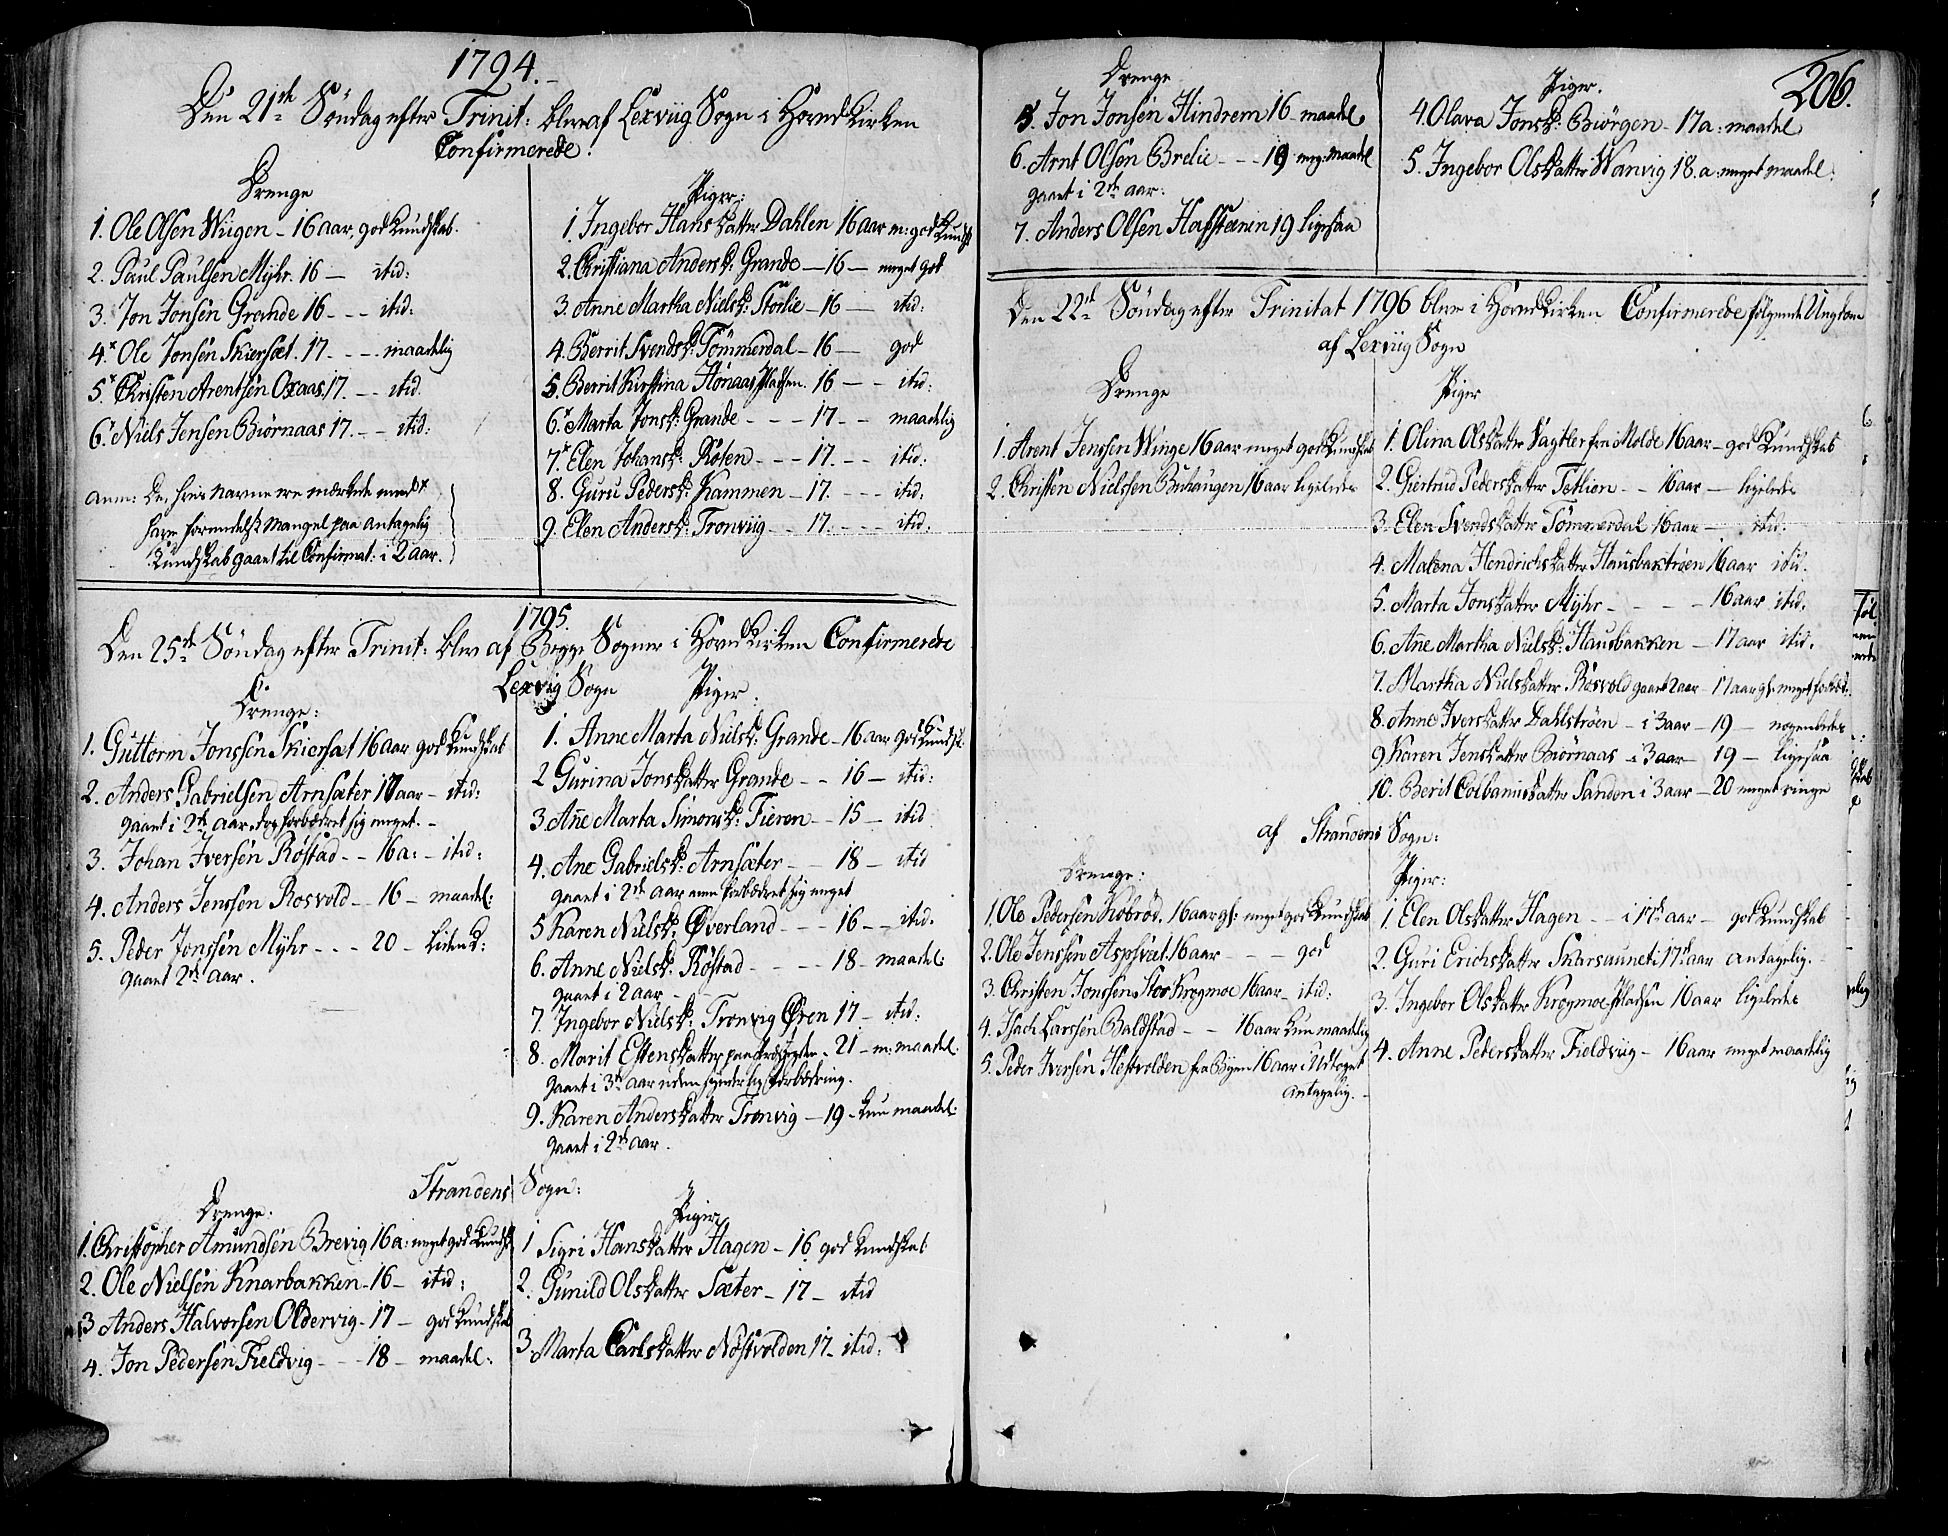 1794.
Den 21de Søndag efter Trinit: blev af Lexviig Sogn i Hoved Kirken
Confirmerede.
Drenge
1. Ole Olsen Wiigen - 16 aar god Kundskab.
2. Paul Paulsen Myhr. 16 — itid:
3. Jon Jonsen Grande 16 - - - itid:
4.x Ole Jonsen Skiersæt. 17. - - - maadelig
5.x Christen Arentsen Oxaas. 17. - - itid.
6.x Niels Jensen Biørnaas 17. - - itid:
Anm: De, hvis Navne ere mærkede med x
have formedelst Mangel paa antagelig
Kundskab gaaet til Confirmat: i 2 aar.
Piger:
1. Ingebor Hans datter Dahlen 16 aar m: god Kundsk
2. Christiana Andersd: Grande — 16 — meget god
3. Anne Martha Nielsd: Storlie - 16 — itid:
4. Berrit Svendsd: Tömmerdal - 16 — god
5. Berrit Kirstina Hönaas Pladsen. 16 - - itid:
6.x Marta Jonsd: Grande - - - 17. - - maadelig
7.x Elen Johansd: Röten - - - 17. - - itid:
8. Guru Pedersd: Kammen - 17. - - - itid:
9. Elen Andersd: Tronviig - - 17. - - - itid:
1795.
Den 25de Søndag efter Trinit: blev af Begge Sogner i Hoved Kirken Confirmerede
Lexvig Sogn
Drenge:
1. Guttorm Jonssen Skiersæt 16 aar god Kundskab
2. Anders Gabrielsen Arnsæter 17 aar - itid:
gaaet i 2de aar, dog forbedret sig meget. -
3. Johan Iversen Röstad - - 16 a: - itid:
4. Anders Jenssen Rosvold - - 16 - maadel:
5. Peder Jonssen Myhr - - - 20 - liden K:
gaaet 2de aar.
Piger.
1. Anne Marta Nielsd: Grande - 16 aar god Kundsk:
2 Gurina Jons datter Grande - - 16 — itid:
3 Añe Marta Simonsd: Fieren - - 15 - itid
4. Ane Gabrielsd: Arnsæter - - 18 - itid
gaaet i 2de aar men forbedret sig meget
5 Karen Nielsd: Øverland - - - 16 - - itid.
6. Anne Nielsd: Röstad - - - - 18 - maadel:
gaaet i 2 aar -
7. Ingebor Nielsd: Tronvig Øren 17 - itid:
8. Marit Estensdatter paa - 21 - m: maadel:
gaaet i 3de aar uden synderlig forbedring.
9. Karen Andersdatter Tronvig — 19 - kun maadel:
gaaet i 2de aar.
Strandens Sogn:
Drenge:
1. Christopher Amundsen Brevig 16 a: meget god Kundsk
2. Ole Nielsen Knarbakken - 16 - itid:
3 Anders Halvorsen Oldervig - 17 - god Kundskab
4. Jon Pedersen Fieldvig - - - 18 - maadel:
Piger
1 Sigri Hans datter Hagen - 16 god Kundskab
2. Gunild Ols datter Sæter - 17 - itid
3. Marta Carls datter Nöstvolden 17 - itid:
206.
Drenge
5. Jon Jonsen Hindrem 16 - maadel.
6. Arnt Olsen Brelie - - - 19 meg: maadel
gaaet i 2de aar.
7. Anders Olsen Hafstæren 19 ligesaa
Piger.
4. Olava Jonsd: Biörgen - 17 a: maadel
5. Ingebor Olsdatter Wanvig 18. a: meget maadel:
Den 22de Søndag efter Trinitat 1796 blev i Hoved Kirken Confirmerede følgende Ungdom
af Lexviig Sogn
Drenge
1. Arent Jenssen Winge 16 aar meget god Kundskab
2. Christen Nielssen Buhaugen 16 aar ligeledes
Piger
1. Olina Ols datter Vagtler fra Molde 16 aar - god Kundskab
2. Giertrud Peders datter Tetlien - - 16 aar — ligeledes
3. Elen Svends datter Tömmerdal 16 aar — itid:
4. Malena Hendrichs datter Hausbakströen 16 aar itid.
5. Marta Jons datter Myhr - - - - 16 aar itid.
6. Añe Martha Nielsd: Hausbakken - 17 aar itid.
7. Martha Niels datter Rosvold gaaet 2 aar - 17 aar gl: meget forbed:
8. Anne Ivers datter Dahlströen - i 3 aar - 19 - nogenledes
9 Karen Jens datter Biörnaas - i 3 aar - 19 - ligesaa
10. Berit Colbanus datter Sanden i 3 aar - 20 meget ringe
af Strandens Sogn:
Drenge:
1. Ole Pedersen Röbröd. 16 aar gl: meget god Kundskab
2. Ole Jenssen Aspsvæt. 16 aar - - - god
3. Christen Jonssen Stor Krogmoe 16 aar - itid:
4. Isach Larssen Baldstad - - 16 aar kun maadelig
5. Peder Iversen Hestvolden fra Byen 16 aar i Udtoget
antagelig. -
Piger:
1 Elen Ols datter Hagen - - i 17de aar - god Kundskab
2. Guri Erichs datter Skarsaunet i 17de aar antagelig. -
3. Ingebor Ols datter Krogmoe Pladsen 16 aar ligeledes
4. Anne Peders datter Fieldviig - 16 aar meget maadelig